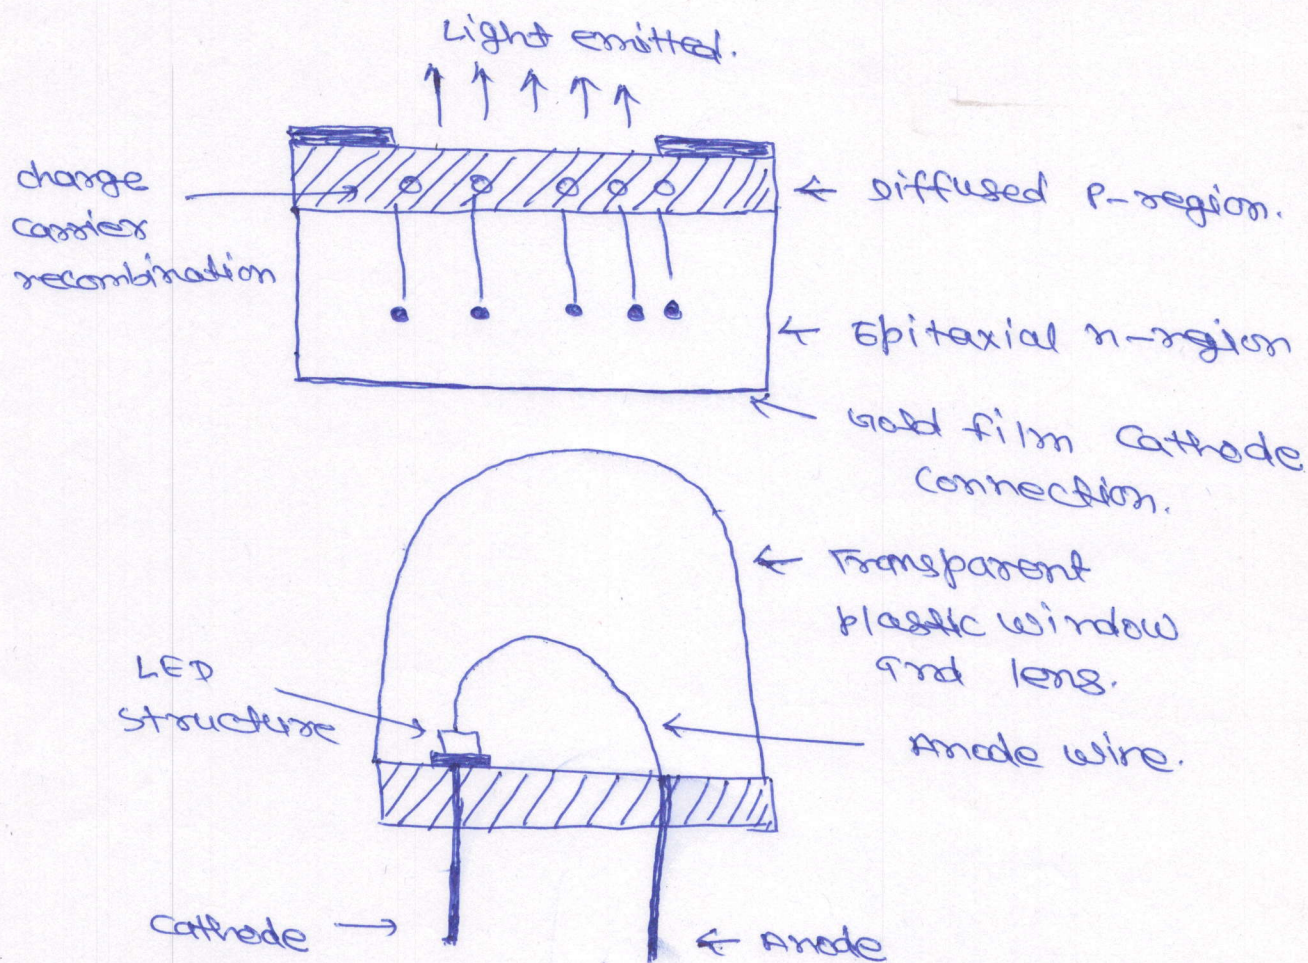 Light emitted.
charge
carrier
recombination
Diffused P-region.
Epitaxial n-region
Gold film Cathode
Connection.
Transparent
plastic window
and lens.
LED
structure
Anode wire.
Cathode
Anode